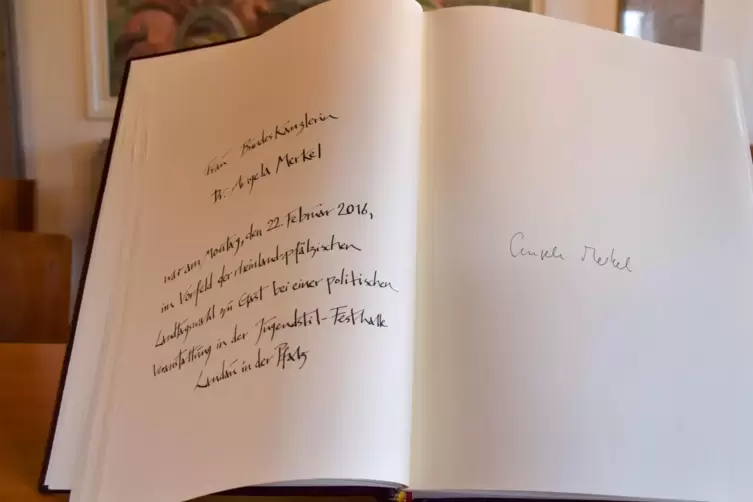 Frau Bundeskanzlerin
Dr. Angela Merkel
war am Montag, den 22. Februar 2016,
im Vorfeld der rheinlandpfälzischen
Landtagswahl zu Gast bei einer politischen
Veranstaltung in der Jugendstil-Festhalle
Landau in der Pfalz
Angela Merkel